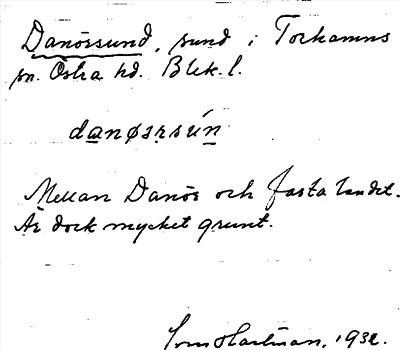 Danörsund, sund i Torhamns
sn. Östra hd. Blek. l.
danørsún
Mellan Danör och fasta landet.
Är dock mycket grunt.
Hartman, 1932.